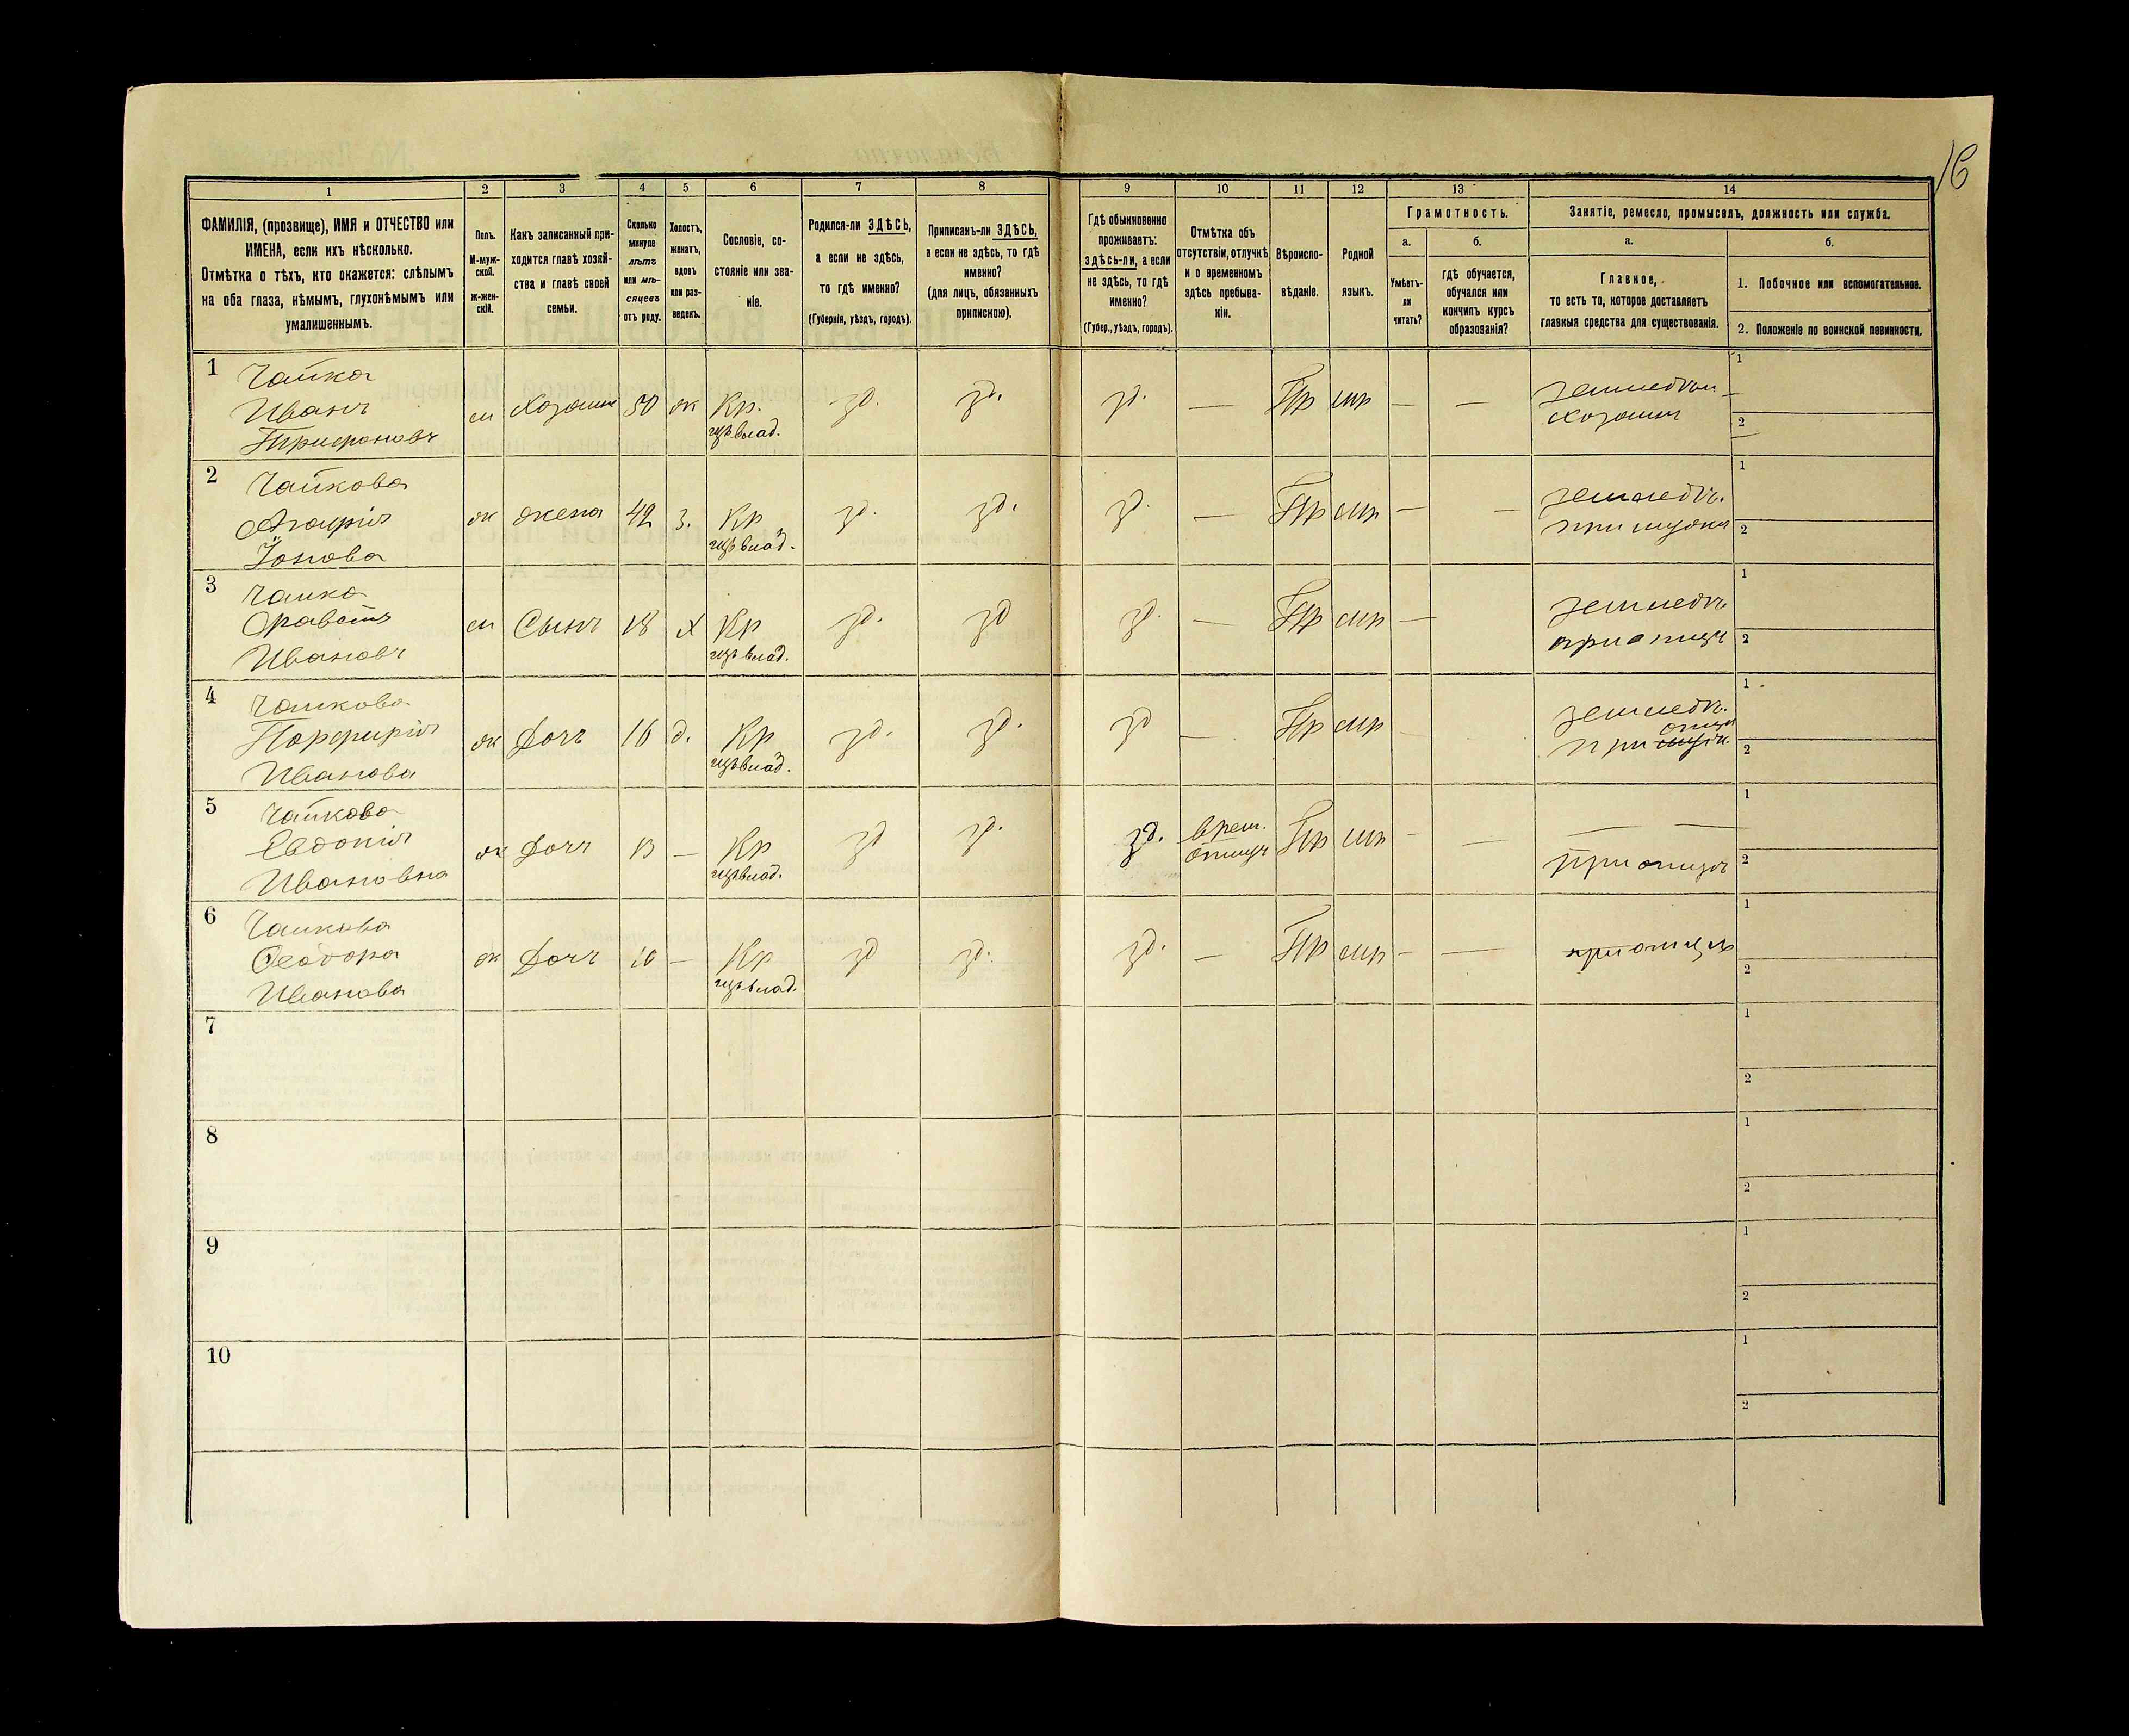 16
1
2
3
4
5
6
7
8
9
10
11
12
13
14
ФАМИЛІЯ, (прозвище), ИМЯ и ОТЧЕСТВО или
ИМЕНА, если ихъ нѣсколько.
Отмѣтка о тѣхъ, кто окажется: слѣпымъ
на оба глаза, нѣмымъ, глухонѣмымъ или
умалишеннымъ.
Полъ.
М-муж-
ской.
ж-жен-
скій.
Какъ записанный при-
ходится главѣ хозяй-
ства и главѣ своей
семьи.
Сколько
минуло
лѣтъ
или мѣ-
сяцевъ
отъ роду.
Холостъ,
женатъ,
вдовъ
или раз-
веденъ.
Сословіе, со-
стояніе или зва-
ніе.
Родился-ли ЗДѢСЬ,
а если не здѣсь,
то гдѣ именно?
(Губернія, уѣздъ, городъ).
Приписанъ-ли ЗДѢСЬ,
а если не здѣсь, то гдѣ
именно?
(для лицъ, обязанныхъ
припискою).
Гдѣ обыкновенно
проживаетъ:
здѣсь-ли, а если
не здѣсь, то гдѣ
именно?
(Губер., уѣздъ, городъ).
Отмѣтка объ
отсутствіи, отлучкѣ
и о временномъ
здѣсь пребыва-
ніи.
Вѣроиспо-
вѣданіе.
Родной
языкъ.
Грамотность.
а.
Умѣетъ-
ли
читать?
б.
гдѣ обучается,
обучался или
кончилъ курсъ
образованія?
Занятіе, ремесло, промыселъ, должность или служба.
а.
Главное,
то есть то, которое доставляетъ
главныя средства для существованія.
б.
1. Побочное или вспомогательное.
2. Положеніе по воинской повинности.
1
Чайка
Иванъ
Трифоновъ
м
хозяинъ
50
ж
Кр.
влад.
зд.
зд.
зд.
—
Пр
мр
—
—
земледѣл
хозяинъ
1
2
2
Чайкова
Агафія
Іонова
ж
жена
42
з.
Кр
влад.
зд.
зд.
зд.
—
Пр
мр
—
—
земледѣл.
при мужѣ
1
2
3
Чайка
Иванов
м
Сынъ
18
х
Кр
влад.
зд.
зд
зд.
—
Пр
мр
—
земледѣл
при отцѣ
1
2
4
Чайкова
Порфирія
Иванова
ж
Дочь
16
д.
Кр
влад.
зд.
зд.
зд
—
Пр
мр
земледѣл.
при отцѣ
1
2
5
Чайкова
Евдокія
Ивановна
ж
Дочь
13
—
Кр
влад.
зд
зд.
зд.
врем.
отлуч
Пр
мр
—
—
при отцѣ
1
2
6
Чайкова
Ѳеодора
Иванова
ж
Дочь
10
—
Кр
влад.
зд
зд.
зд.
—
Пр
мр
—
—
при отцѣ
1
2
7
1
2
8
1
2
9
1
2
10
1
2